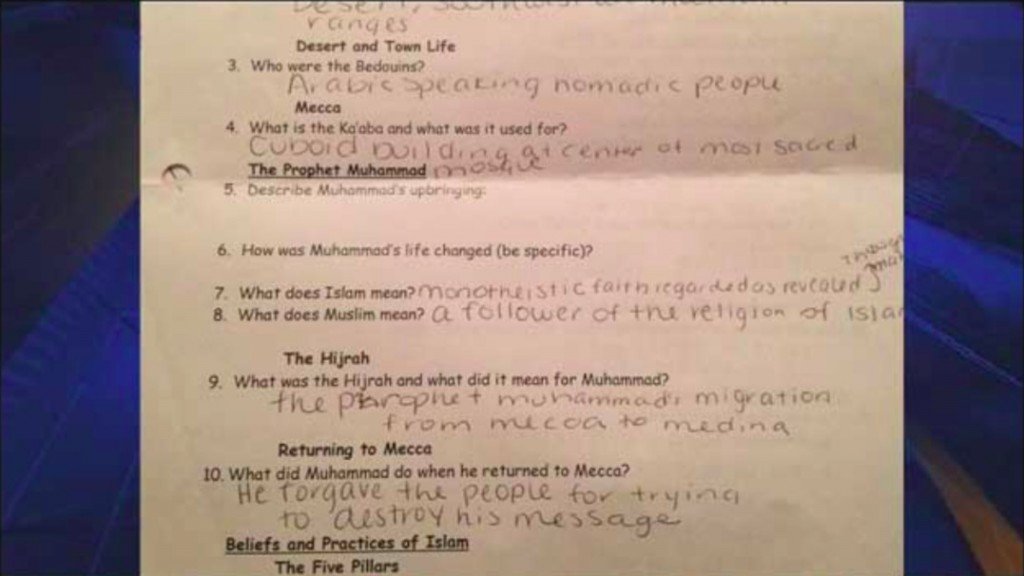 Desert,
ranges
Desert and Town Life
3. Who were the Bedouins?
Arabic speaking nomadic people
Mecca
4. What is the Ka'aba and what was it used for?
Cuboid building at center of most sacred
The Prophet Muhammad mosque
5. Describe Muhammad's upbringing:
6. How was Muhammad's life changed (be specific)?
through
7. What does Islam mean? monotheistic faith regarded as revealed
8. What does Muslim mean? a follower of the religion of Islam
The Hijrah
9. What was the Hijrah and what did it mean for Muhammad?
the prophet muhammad's migration
from mecca to medina
Returning to Mecca
10. What did Muhammad do when he returned to Mecca?
He forgave the people for trying
to destroy his message
Beliefs and Practices of Islam
The Five Pillars